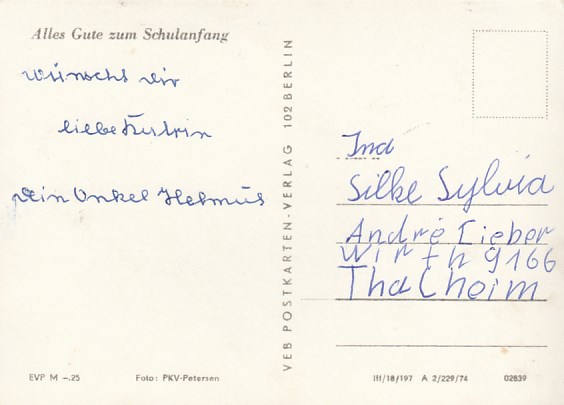 Alles Gute zum Schulanfang
wünscht dir
liebe Kathrin
Dein Onkel Helmut
VEB POSTKARTEN-VERLAG 102 BERLIN
Ina
Silke Sylvia
André Lieber
Wirth 9166
Thalheim
EVP M –.25
Foto: PKV-Petersen
III/18/197 A 2/229/74
02839